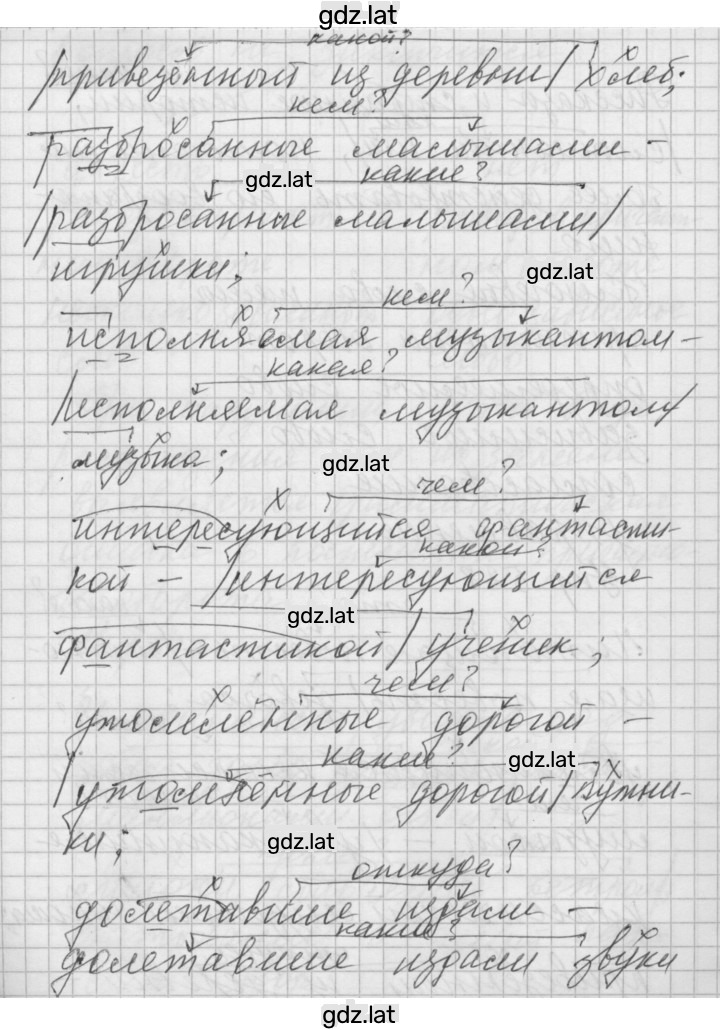 gdz.lat
какой?
/привезённый из деревни/ хлеб;
кем?
разбросанные малышами –
gdz.lat какие?
/разбросанные малышами/
игрушки; gdz.lat
кем?
исполняемая музыкантом –
какая?
/исполняемая музыкантом/
музыка; gdz.lat
чем?
интересующийся фантасти-
какой?
кой – /интересующийся
gdz.lat
фантастикой/ ученик;
чем?
утомлённые дорогой –
какие? gdz.lat
/утомлённые дорогой/ путни-
ки; gdz.lat
откуда?
долетавшие издали –
какие?
долетавшие издали звуки
gdz.lat